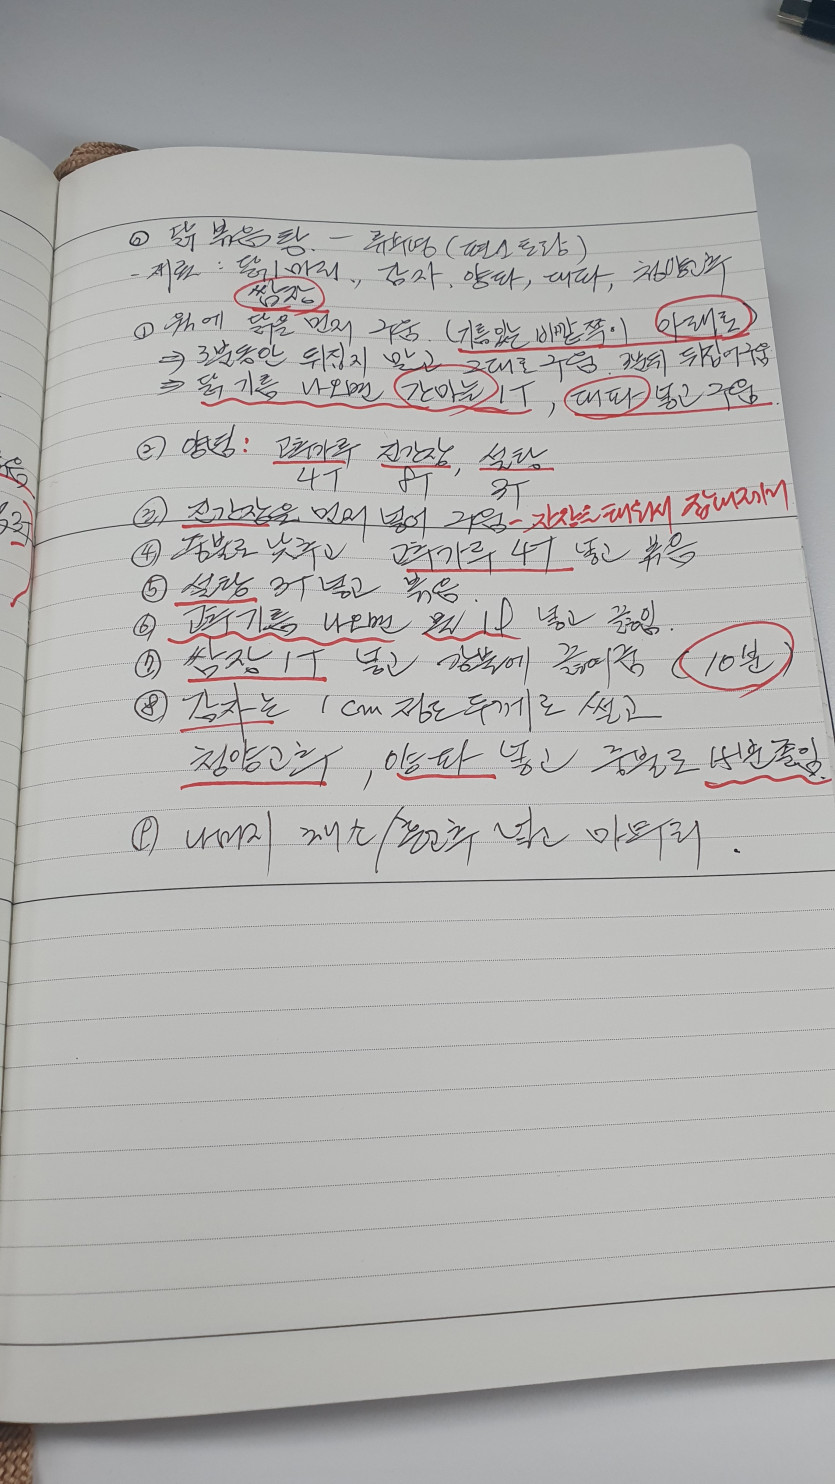 ◎ 닭볶음탕 - 류수영 (편스토랑)
- 재료 : 닭 1마리, 감자, 양파, 대파, 청양고추
쌈장
① 웍에 닭을 먼저 구움. (기름있는 비깥쪽이 아래로)
⇒ 3분동안 뒤집지 말고 그대로 구움. 3분뒤 뒤집어 구움
⇒ 닭 기름 나오면 간마늘 1T, 대파 넣고 구움.
② 양념: 고추가루 진간장, 설탕
4T 8T 3T
③ 진간장을 먼저 넣어 구움 - 간장을 태워서
④ 중불로 낮추고 고추가루 4T 넣고 볶음
⑤ 설탕 3T 넣고 볶음.
⑥ 고추기름 나오면 물 넣고 끓임.
⑦ 쌈장 1T 넣고 강불에 끓여줌 (10분)
⑧ 감자는 1cm 정도 두께로 썰고
청양고추, 양파 넣고 중불로 졸임.
⑨ 나머지 채소/홍고추 넣고 마무리.